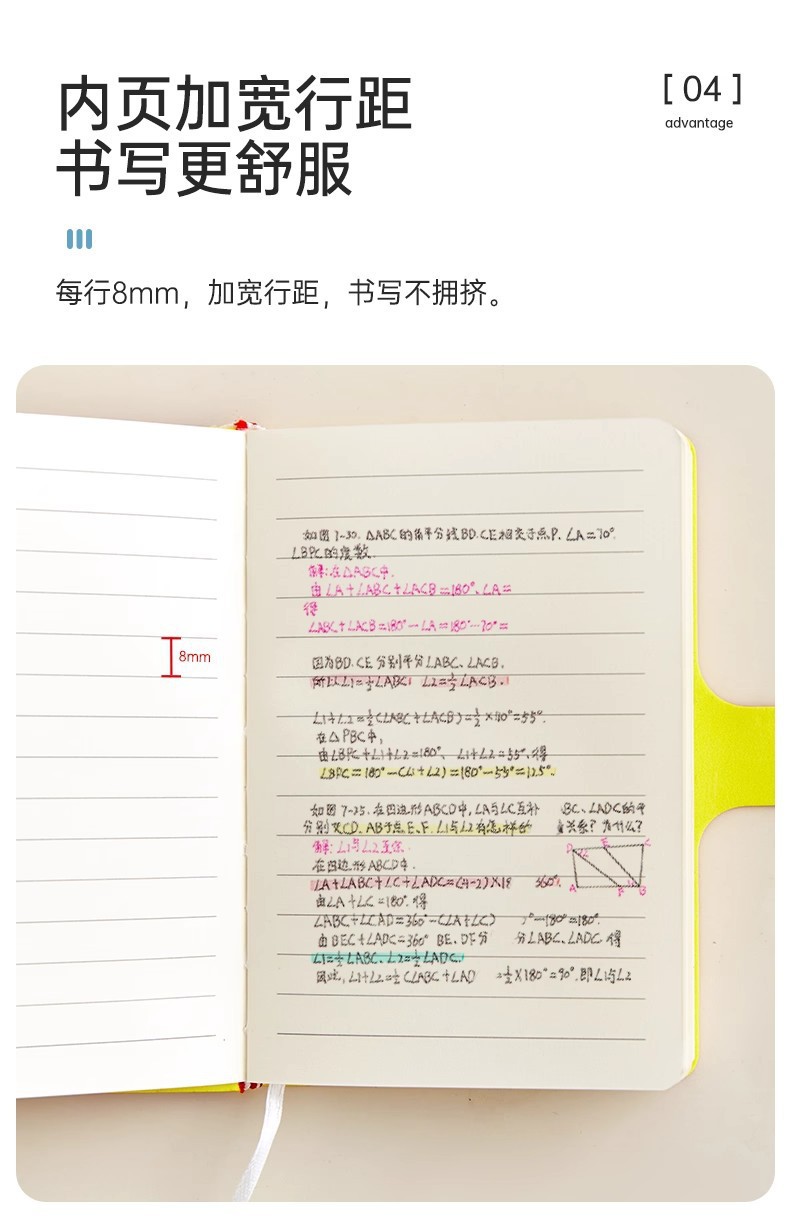 内页加宽行距
书写更舒服
[ 04 ]
advantage
每行8mm，加宽行距，书写不拥挤。
8mm
如图7-30. △ABC的角平分线BD.CE相交于点P. ∠A=70°.
∠BPC的度数.
解:在△ABC中.
由∠A+∠ABC+∠ACB=180°、∠A=
得
∠ABC+∠ACB=180°-∠A=180°-70°=
因为BD.CE分别平分∠ABC、∠ACB.
所以∠1=½∠ABC, ∠2=½∠ACB.
∠1+∠2=½(∠ABC+∠ACB)=½×110°=55°.
在△PBC中,
由∠BPC+∠1+∠2=180°、∠1+∠2=55°.得
∠BPC=180°-(∠1+∠2)=180°-55°=125°.
如图7-25.在四边形ABCD中,∠A与∠C互补 BC、∠ADC的平
分别交CD、AB于点E、F. ∠1与∠2有怎样的 关系? 为什么?
解:∠1与∠2互余.
在四边形ABCD中.
D E C
∠A+∠ABC+∠C+∠ADC=(4-2)×18 360°.
A F B
由∠A+∠C=180°.得
∠ABC+∠CAD=360°-(∠A+∠C) -180°=180°.
由BEC+∠ADC=360° BE、DF分 分∠ABC、∠ADC.得
∠1=½∠ABC、∠2=½∠ADC.
因此,∠1+∠2=½(∠ABC+∠AD =½×180°=90°.即∠1与∠2